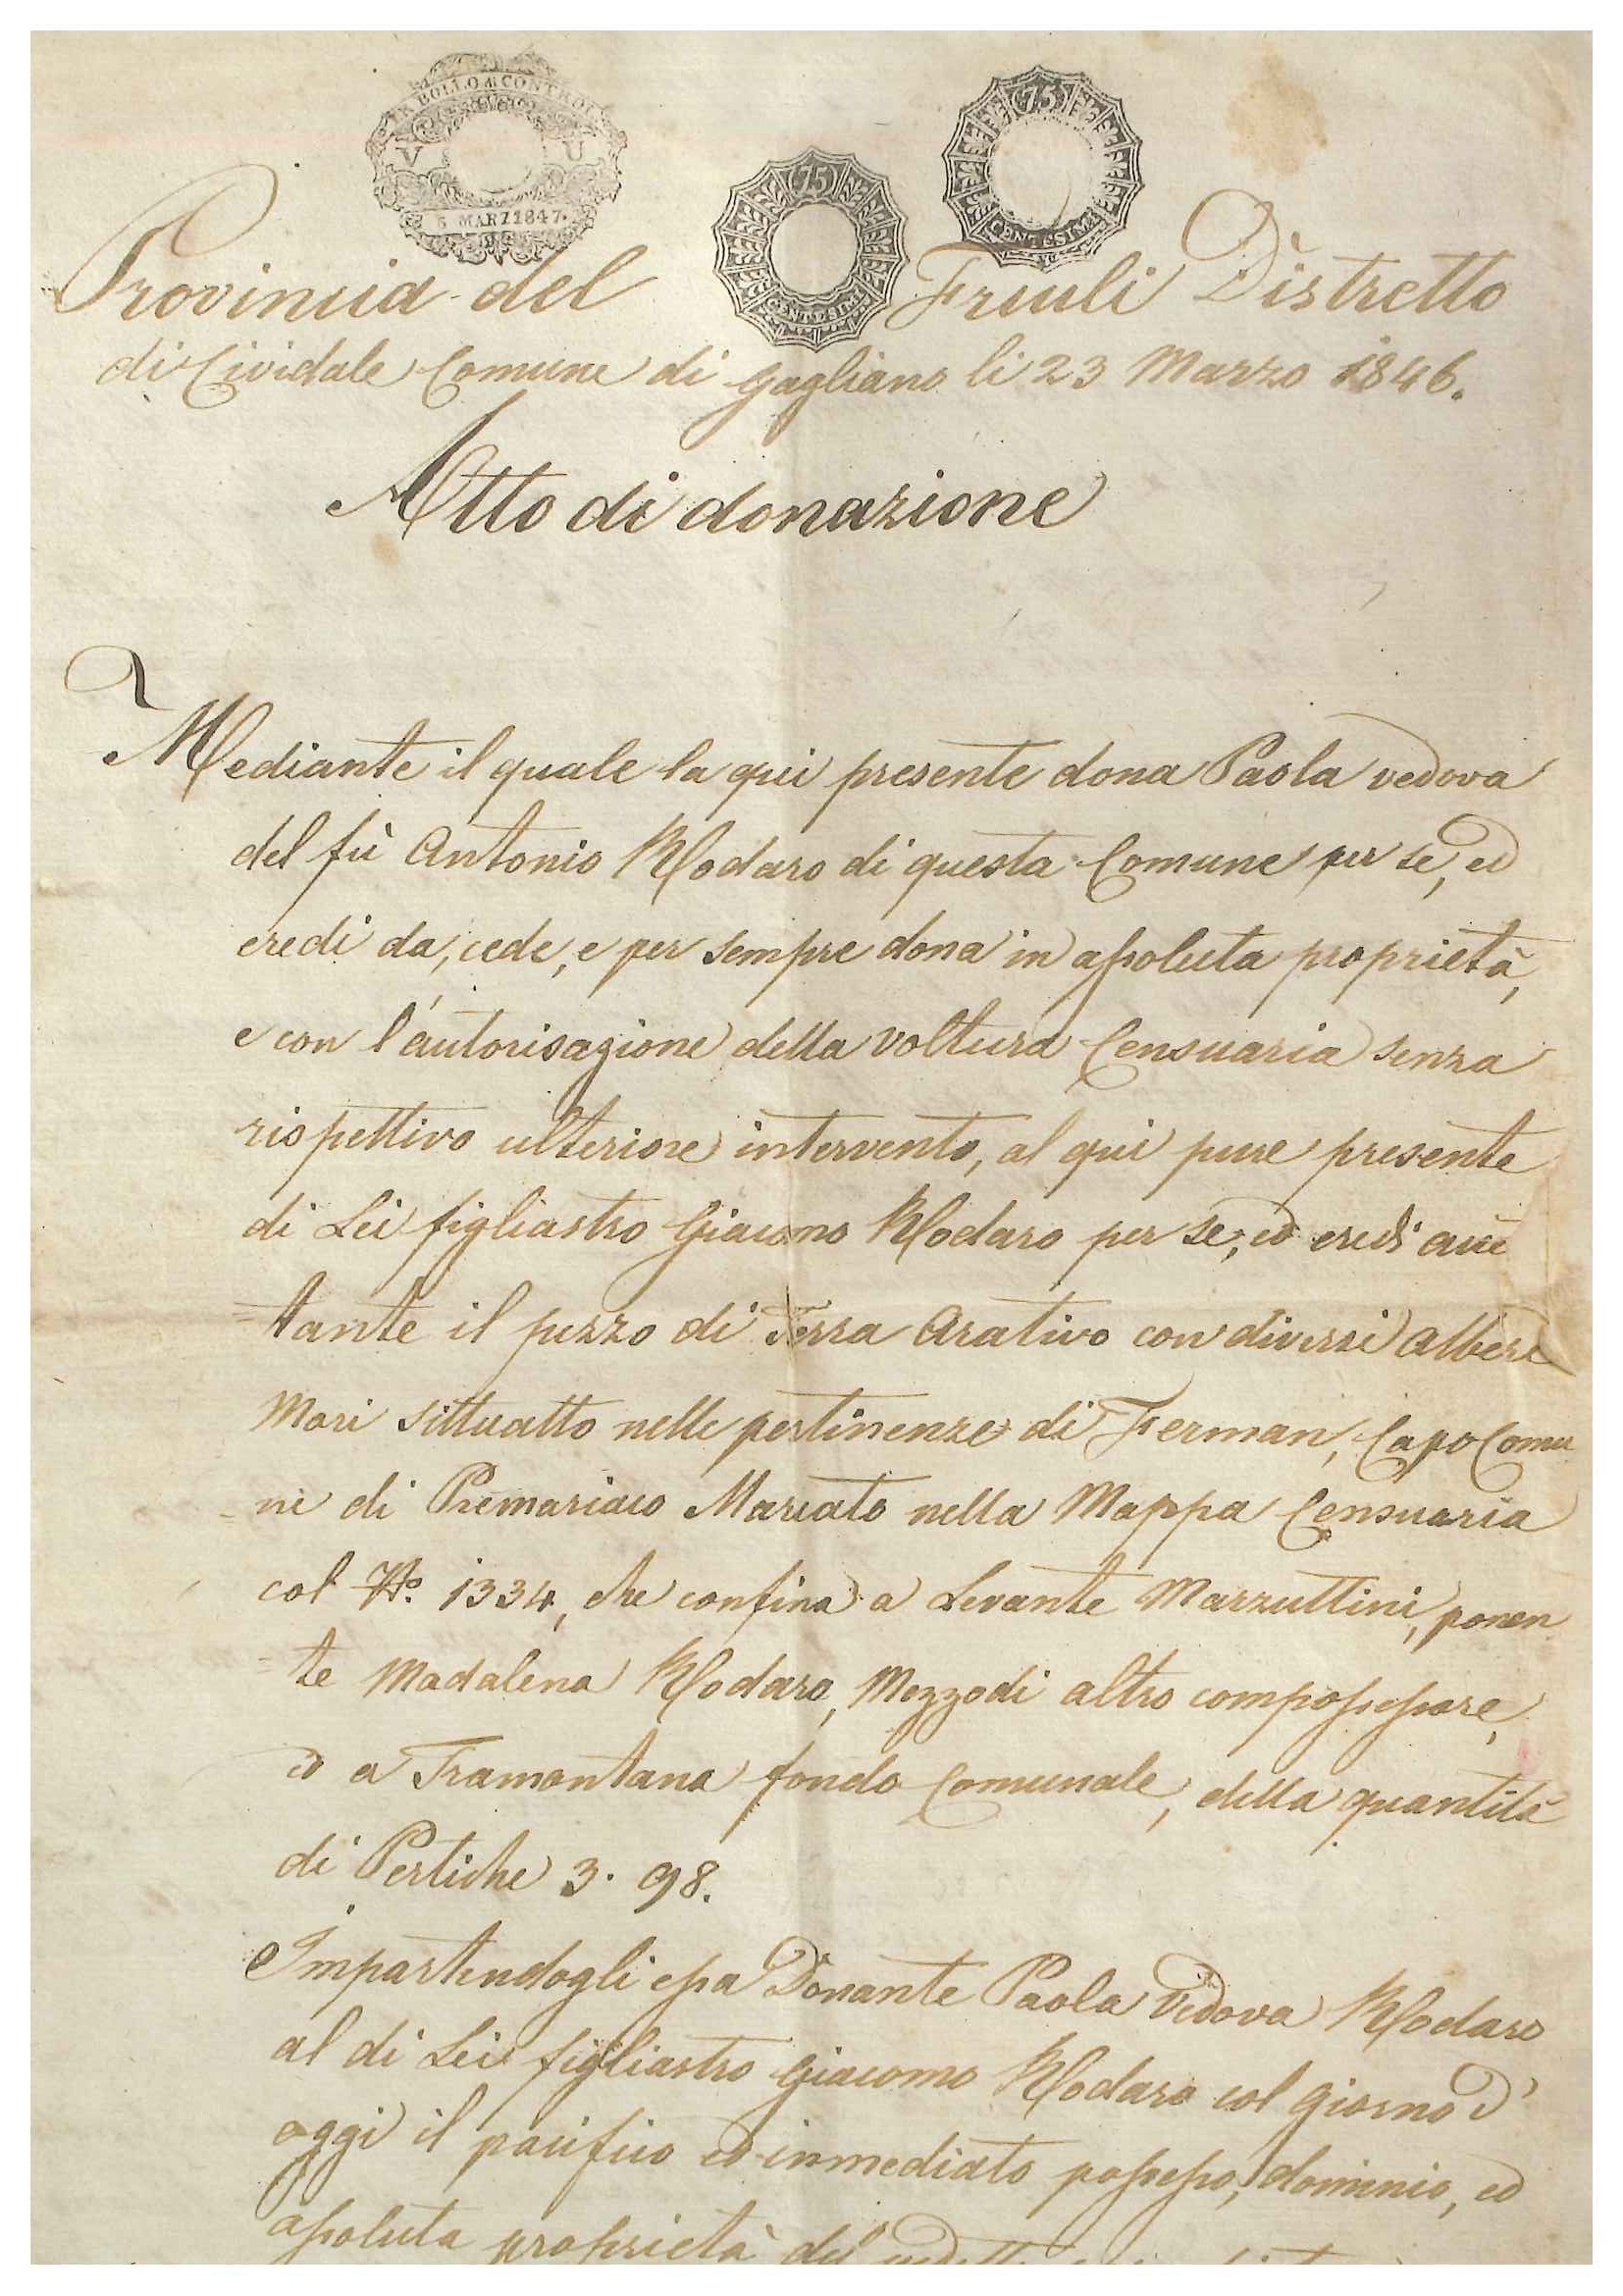 BOLLO di CONTROL
V U
5 MARZ 1847.
75
CENTESIMI
75
CENTESIMI
Provincia del Friuli Distretto
di Cividale Comune di Gagliano li 23 Marzo 1846.
Atto di donazione
Mediante il quale la qui presente dona Paola vedova
del fù Antonio Rodaro di questa Comune per se, ed
eredi da, cede, e per sempre dona in assoluta proprietà,
e con l'autorisazione della voltura Censuaria senza
rispettivo ulteriore intervento, al qui pure presente
di Lei figliastro Giacomo Rodaro per se, ed eredi acce
tante il pezzo di Terra Arativo con diversi Alberi
Mori sittuatto nelle pertinenze di Ferman, Capo Comu
ne di Premariaco Marcato nella Mappa Censuaria
col No. 1334, che confina a Levante Marzuttini, ponen
te Madalena Rodaro, Mezzodi altro compossessore,
ed a Tramontana fondo Comunale, della quantità
di Pertiche 3. 98.
Impartendogli essa Donante Paola Vedova Rodaro
al di Lei figliastro Giacomo Rodaro col giorno d'
oggi il pacifico ed inmediato possesso, dominio, ed
assoluta proprietà del